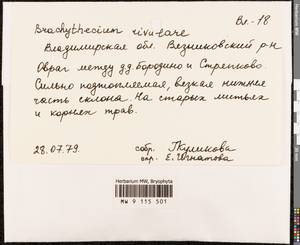 Вл.-18
Brachythecium rivulare
Владимирская обл. Вязниковский р-н
Овраг между дд. Бородино и Стрелково
Сильно подтопляемая, вязкая нижняя
часть склона. На старых листьях
и корнях трав.
28.07.79. собр. Куликова
опр. Е. Игнатова
Herbarium MW, Bryophyta
MW 9 115 501